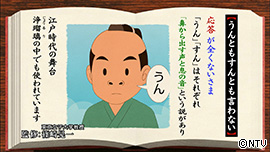 【うんともすんとも言わない】
応答が全くないさま
「うん」「すん」はそれぞれ
「鼻から出す声と息の音」という説があり
うん
江戸時代の舞台
浄瑠璃の中でも使われています
じょうるり
©NTV